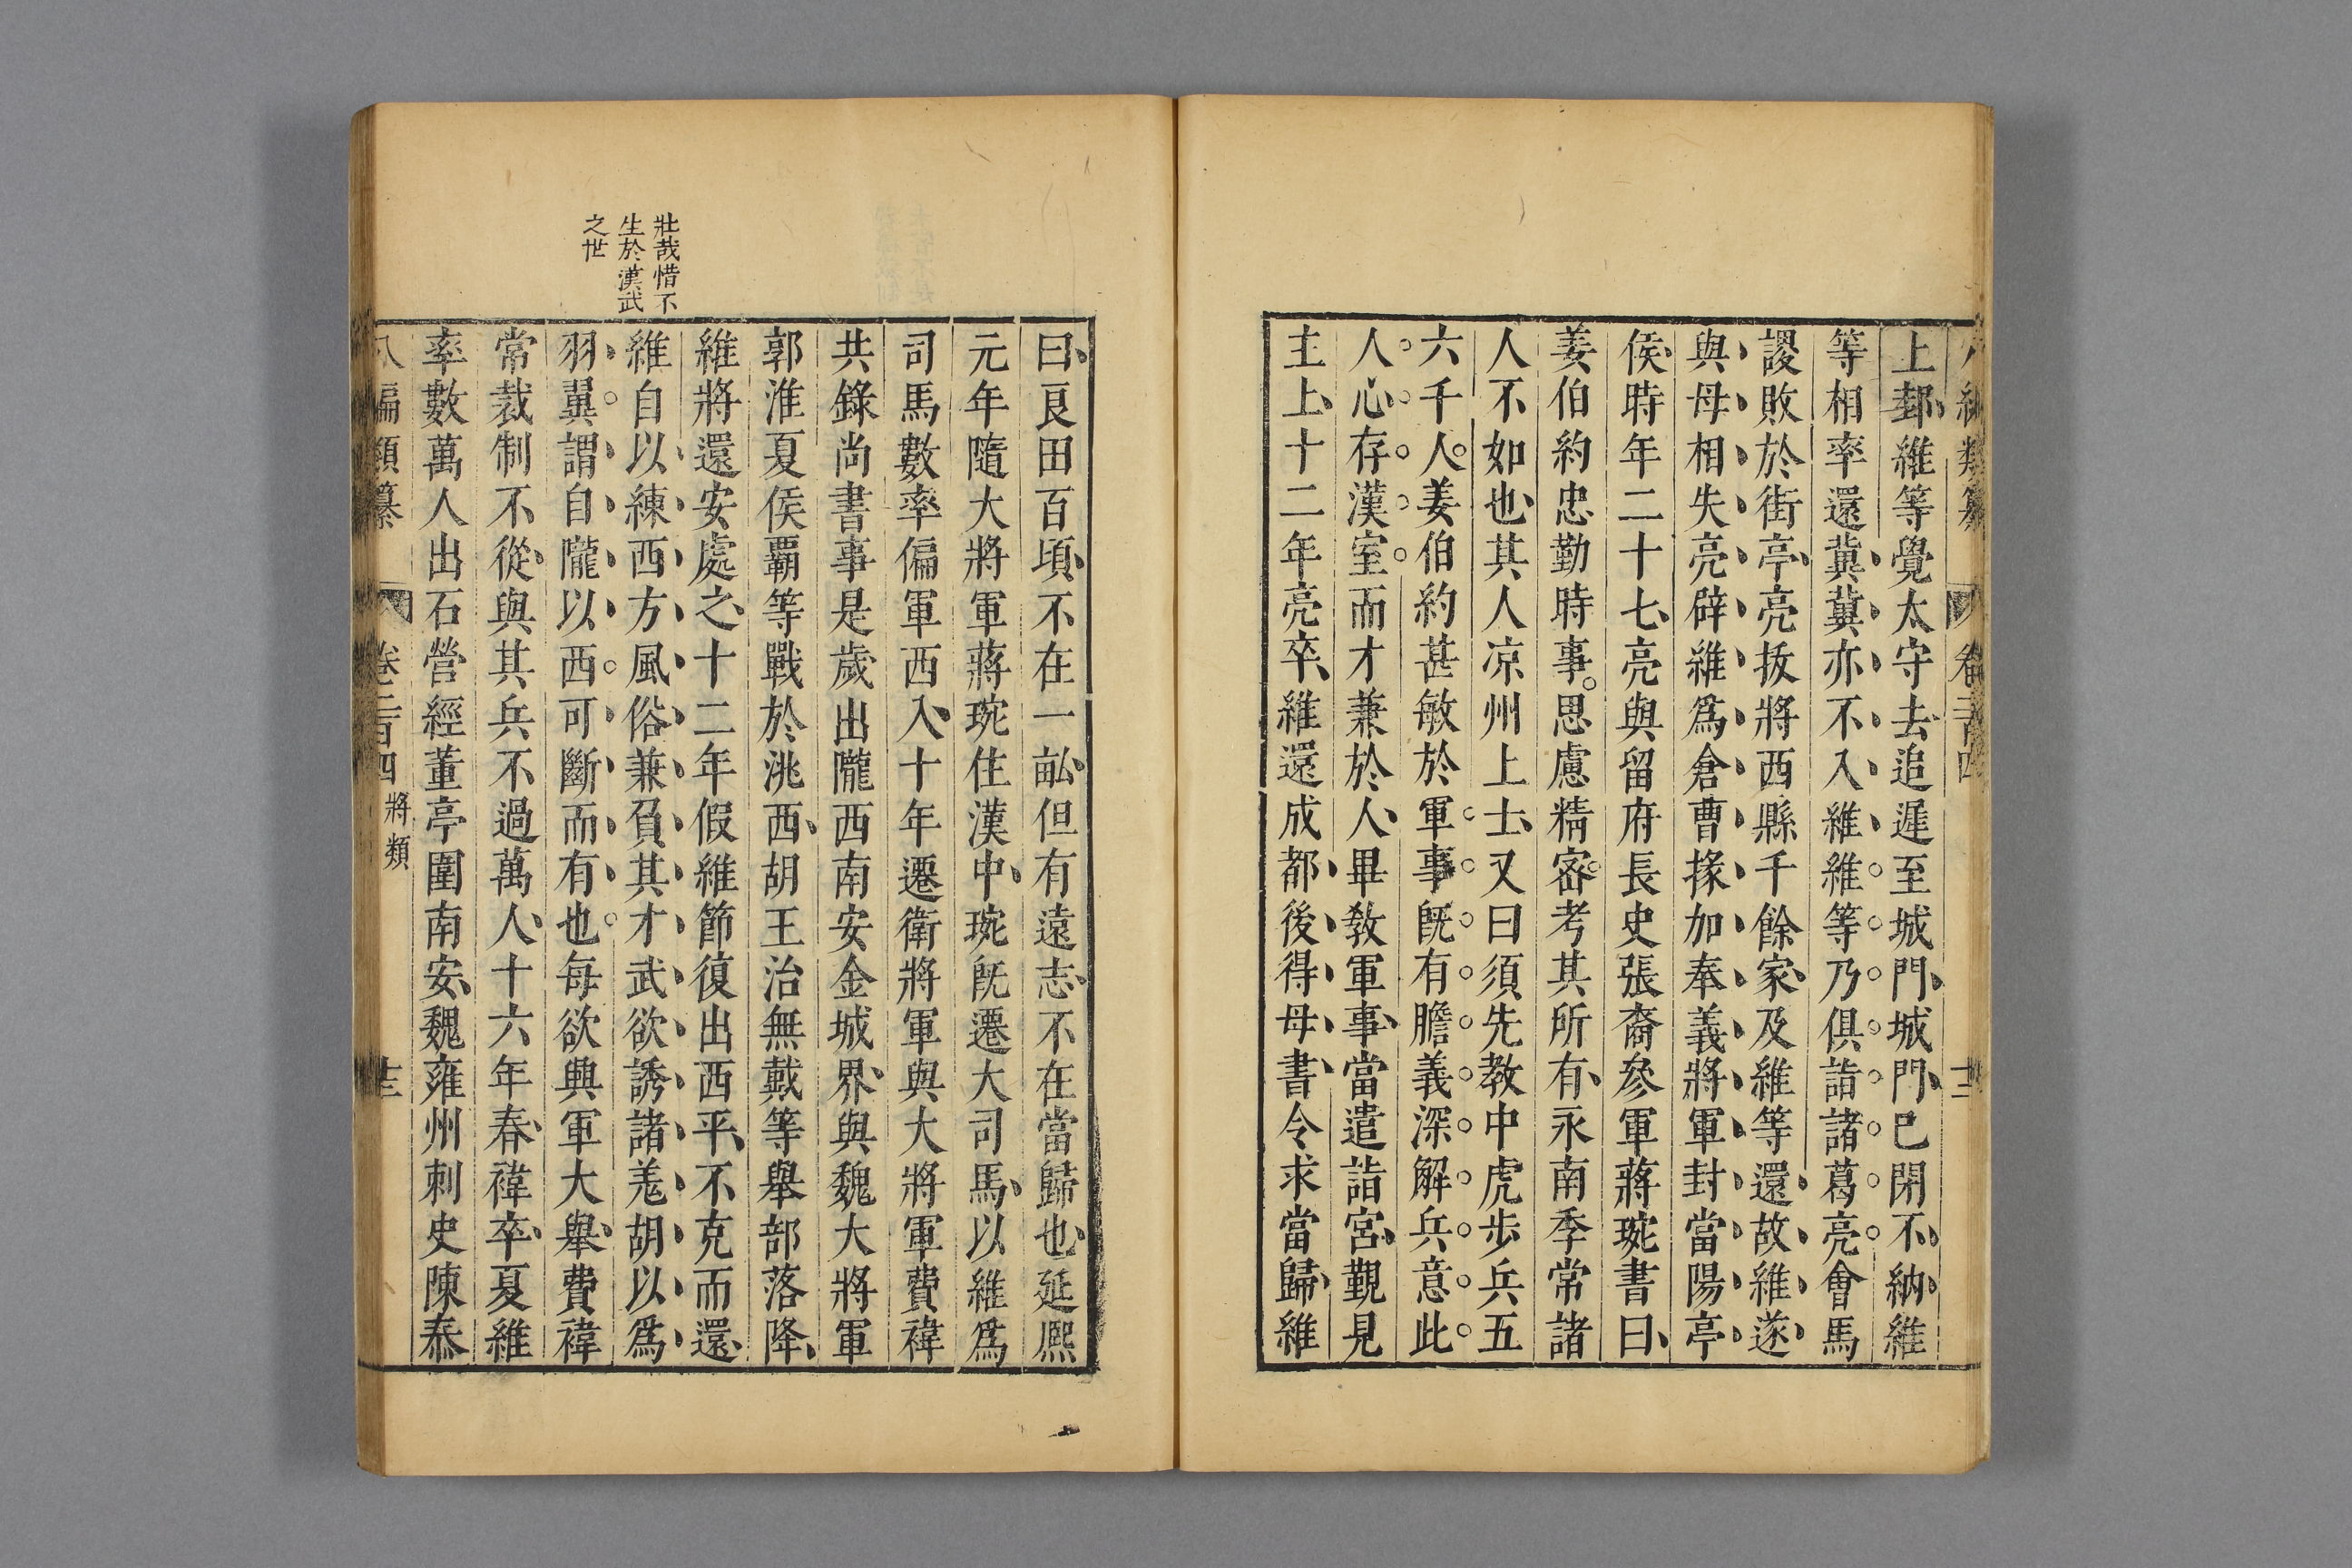 上邽維等覺太守去追遲至城門城門已閉不納維
等相率還冀冀亦不入維維等乃俱詣諸葛亮會馬
謖敗於街亭亮拔將西縣千餘家及維等還故維遂
與母相失亮辟維爲倉曹掾加奉義將軍封當陽亭
侯時年二十七亮與留府長史張裔參軍蔣琬書曰
姜伯約忠勤時事思慮精密考其所有永南季常諸
人不如也其人凉州上士又曰須先教中虎步兵五
六千人姜伯約甚敏於軍事旣有膽義深解兵意此
人心存漢室而才兼於人畢敎軍事當遣詣宮覲見
主上十二年亮卒維還成都後得母書令求當歸維
曰良田百頃不在一畝但有遠志不在當歸也延熈
元年隨大將軍蔣琬住漢中琬旣遷大司馬以維爲
司馬數率偏軍西入十年遷衛將軍與大將軍費褘
共錄尚書事是歲出隴西南安金城界與魏大將軍
郭淮夏侯霸等戰於洮西胡王治無戴等舉部落降
維將還安處之十二年假維節復出西平不克而還
維自以練西方風俗兼負其才武欲誘諸羗胡以爲
羽翼謂自隴以西可斷而有也每欲興軍大舉費褘
常裁制不從與其兵不過萬人十六年春褘卒夏維
率數萬人出石營經董亭圍南安魏雍州刺史陳泰
壯哉惜不
生於漢武
之世
八編類纂 卷二百四 將類 十三